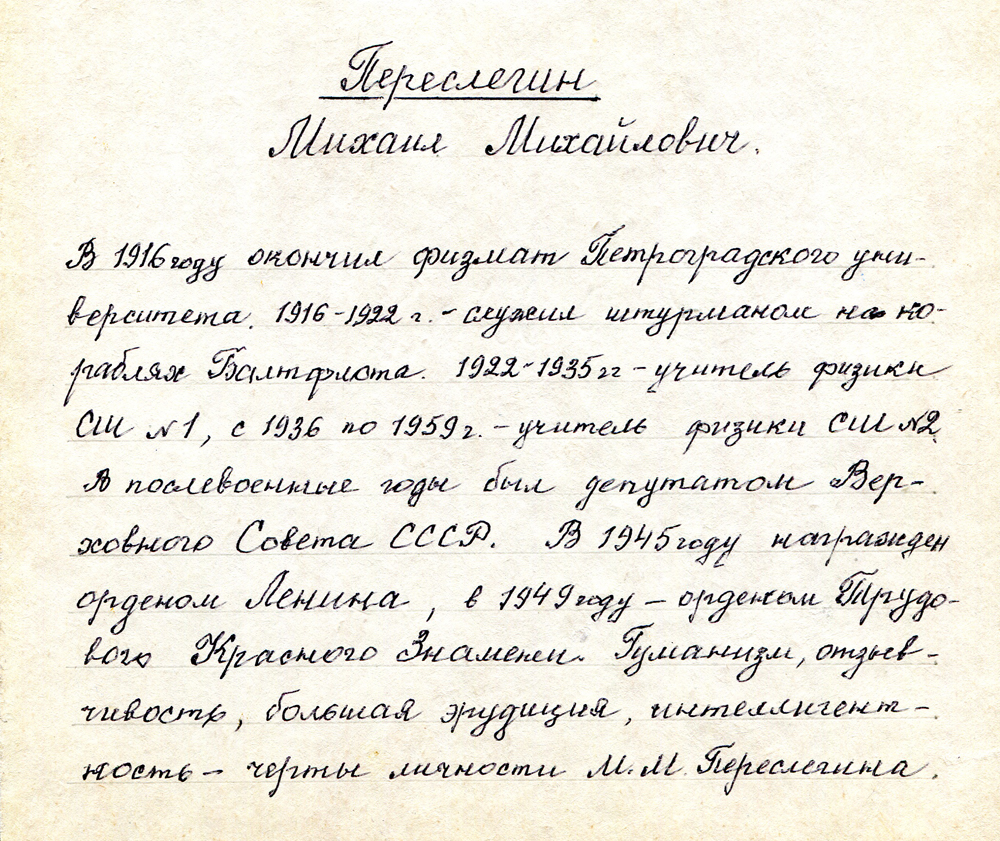 Переслегин
Михаил Михайлович.
В 1916 году окончил физмат Петроградского уни-
верситета. 1916-1922 г. - служил штурманом на ко-
раблях Балтфлота. 1922-1935 гг - учитель физики
СШ №1, с 1936 по 1959 г. - учитель физики СШ №2
В послевоенные годы был депутатом Вер-
ховного Совета СССР. В 1945 году награжден
орденом Ленина, в 1949 году - орденом Трудо-
вого Красного Знамени. Гуманизм, отзыв-
чивость, большая эрудиция, интеллигент-
ность - черты личности М.М. Переслегина.